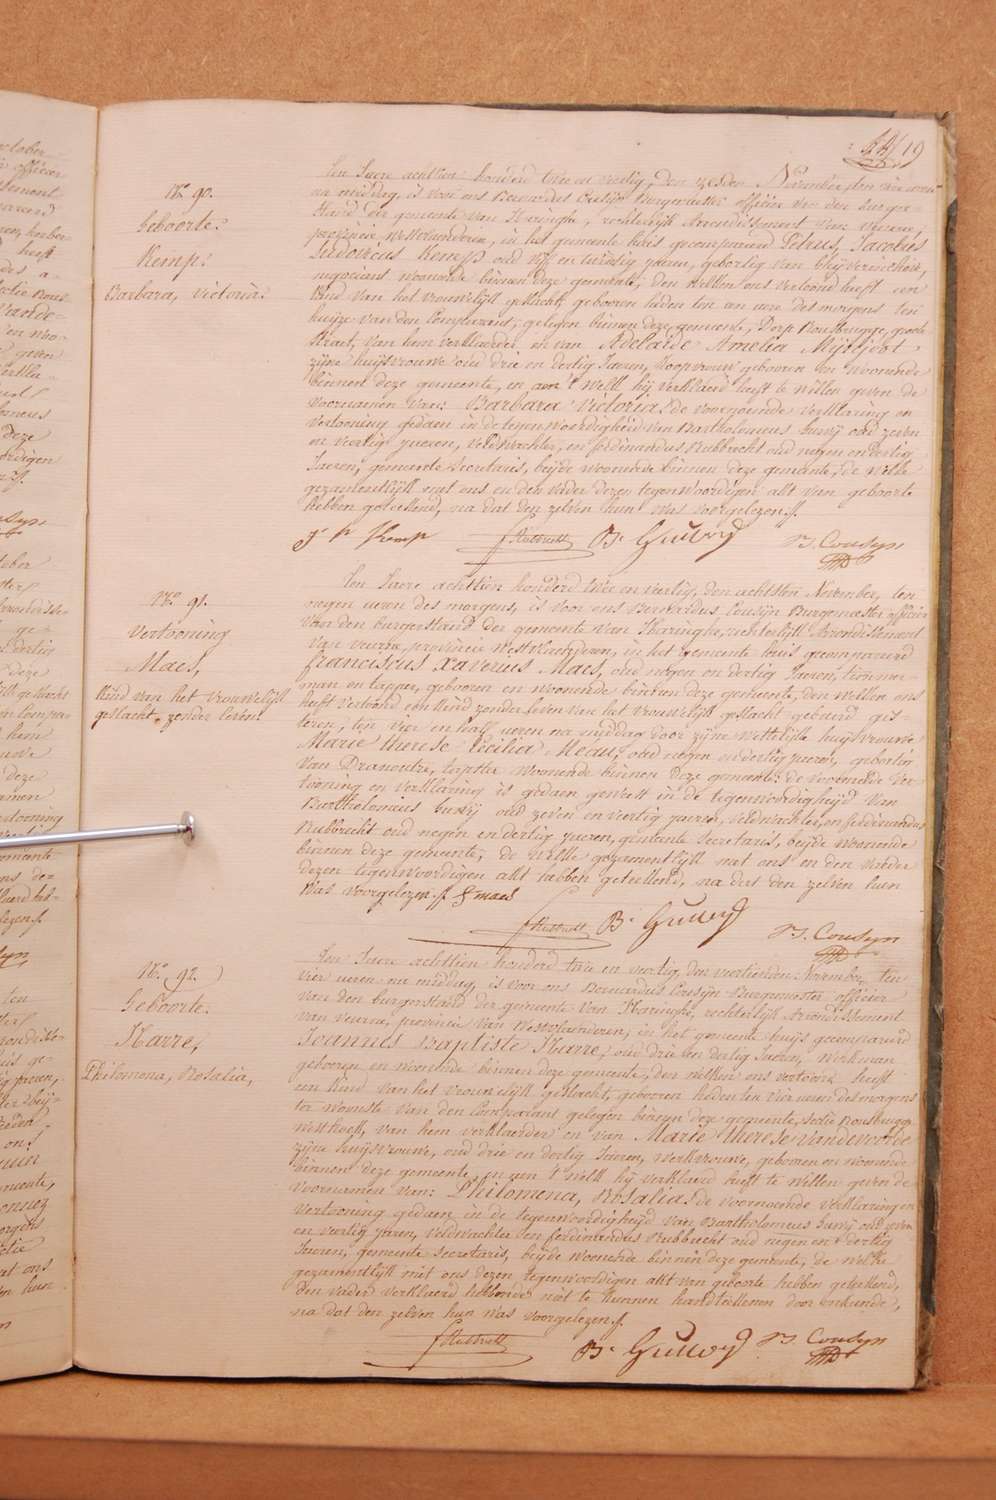 19
No. 90.
Geboorte.
Kemp.
Barbara, Victoria.
Ten Jaere achttien honderd twee en veertig, den zesden November ten vier uren
na middag, is voor ons Bernardus Cousijn Burgemeester officier van den burger-
stand der gemeente van Haringhe, rechterlijk Arrondissement van Veurne,
provincie Westvlanderen, in het gemeente huis gecompareerd Petrus, Jacobus
Ludovicus Kemp oud vijf en twintig jaeren, geboortig van Ghijverinchove,
negociant woonende binnen deze gemeente, den welken ons vertoond heeft een
kind van het vrouwelijk geslacht, gebooren heden ten een ure des morgens ten
huize van den Comparant, gelegen binnen deze gemeente, Dorp Rousbrugge, groote
straet, van hem verklaerder en van Adelaide Amelia
zijne huijsvrouwe oud drie en dertig Jaeren, Koopvrouw gebooren en woonende
binnen deze gemeente, en aen 't welk hij verklaerd heeft te willen geven de
voornamen van: Barbara Victoria. de voornoemde verklaring en
vertooning gedaen in de tegenwoordigheijd van Bartholomeus huwij oud zeven
en veertig jaeren, veldwachter, en ferdinandus Rubbrecht oud negen en dertig
Jaeren, gemeente secretaris, beijde woonende binnen deze gemeente, de welke
gezamentlijk met ons en den vader dezen tegenwoordigen akt van geboorte
hebben geteekend, na dat den zelven hun was voorgelezen.
Kemp fRubbrecht B. Huwy B. Cousyn
No. 91.
Vertooning
Maes,
Kind van het vrouwelijk
geslacht zonder leven.
Ten Jaere achttien honderd twee en veertig, den achtsten November, ten
negen uren des morgens, is voor ons Bernardus Cousijn Burgemeester officier
van den burgerstand der gemeente van Haringhe, rechterlijk Arrondissement
van Veurne, provincie Westvlaenderen, in het gemeente huis gecompareerd
franciscus xaverius Maes, oud negen en dertig Jaeren, timmer-
man en tapper, gebooren en woonende binnen deze gemeente, den welken ons
heeft vertoond een kind zonder leven van het vrouwelijk geslacht gebaerd gis-
teren, ten vier en half uren na middag door zijne wettelijke huijsvrouwe
Marie therese Cecilia Meau, oud negen en dertig jaeren, geboortig
van Dranoutre, tapster woonende binnen deze gemeente: de voornoemde ver-
tooning en verklaering is gedaen geweest in de tegenwoordigheijd van
Bartholomeus huwij oud zeven en veertig jaeren, veldwachter, en ferdinandus
Rubbrecht oud negen en dertig jaeren, gemeente secretaris, beijde woonende
binnen deze gemeente, de welke gezamentlijk met ons en den vader
dezen tegenwoordigen akt hebben geteekend, na dat den zelven hun
was voorgelezen. f maes
fRubbrecht B. Huwy B. Cousyn
No. 92.
Geboorte.
Harre,
Philomena, Rosalia,
Ten Jaere achttien honderd twee en veertig, den veertienden November, ten
vier uren na middag, is voor ons Bernardus Cousijn Burgemeester officier
van den burgerstand der gemeente van Haringhe, rechterlijk Arrondissement
van Veurne, provincie van Westvlaenderen, in het gemeente huijs gecompareerd
Joannes Baptiste Harre, oud drie en dertig Jaeren, werkman
gebooren en woonende binnen deze gemeente, den welken ons vertoond heeft
een kind van het vrouwelijk geslacht, gebooren heden ten vier uren des morgens
ter woonste van den Comparant gelegen binnen deze gemeente, sectie Rousbrugge
westhoek, van hem verklaerder en van Marie therese Vandevoorde
zijne huijsvrouwe, oud drie en dertig Jaeren, werkvrouwe, gebooren en woonende
binnen deze gemeente, en aen 't welk hij verklaerd heeft te willen geven de
voornamen van: Philomena, Rosalia. de voornoemde verklaring en
vertooning gedaen in de tegenwoordigheijd van Bartholomeus huwij oud zeven
en veertig jaeren, veldwachter en ferdinandus Rubbrecht oud negen en dertig
Jaeren, gemeente secretaris, beijde woonende binnen deze gemeente, de welke
gezamentlijk met ons dezen tegenwoordigen akt van geboorte hebben geteekend,
den vader verklaerd hebbende niet te kunnen handteekenen door onkunde,
na dat den zelven hun was voorgelezen.
fRubbrecht B. Huwy B. Cousyn